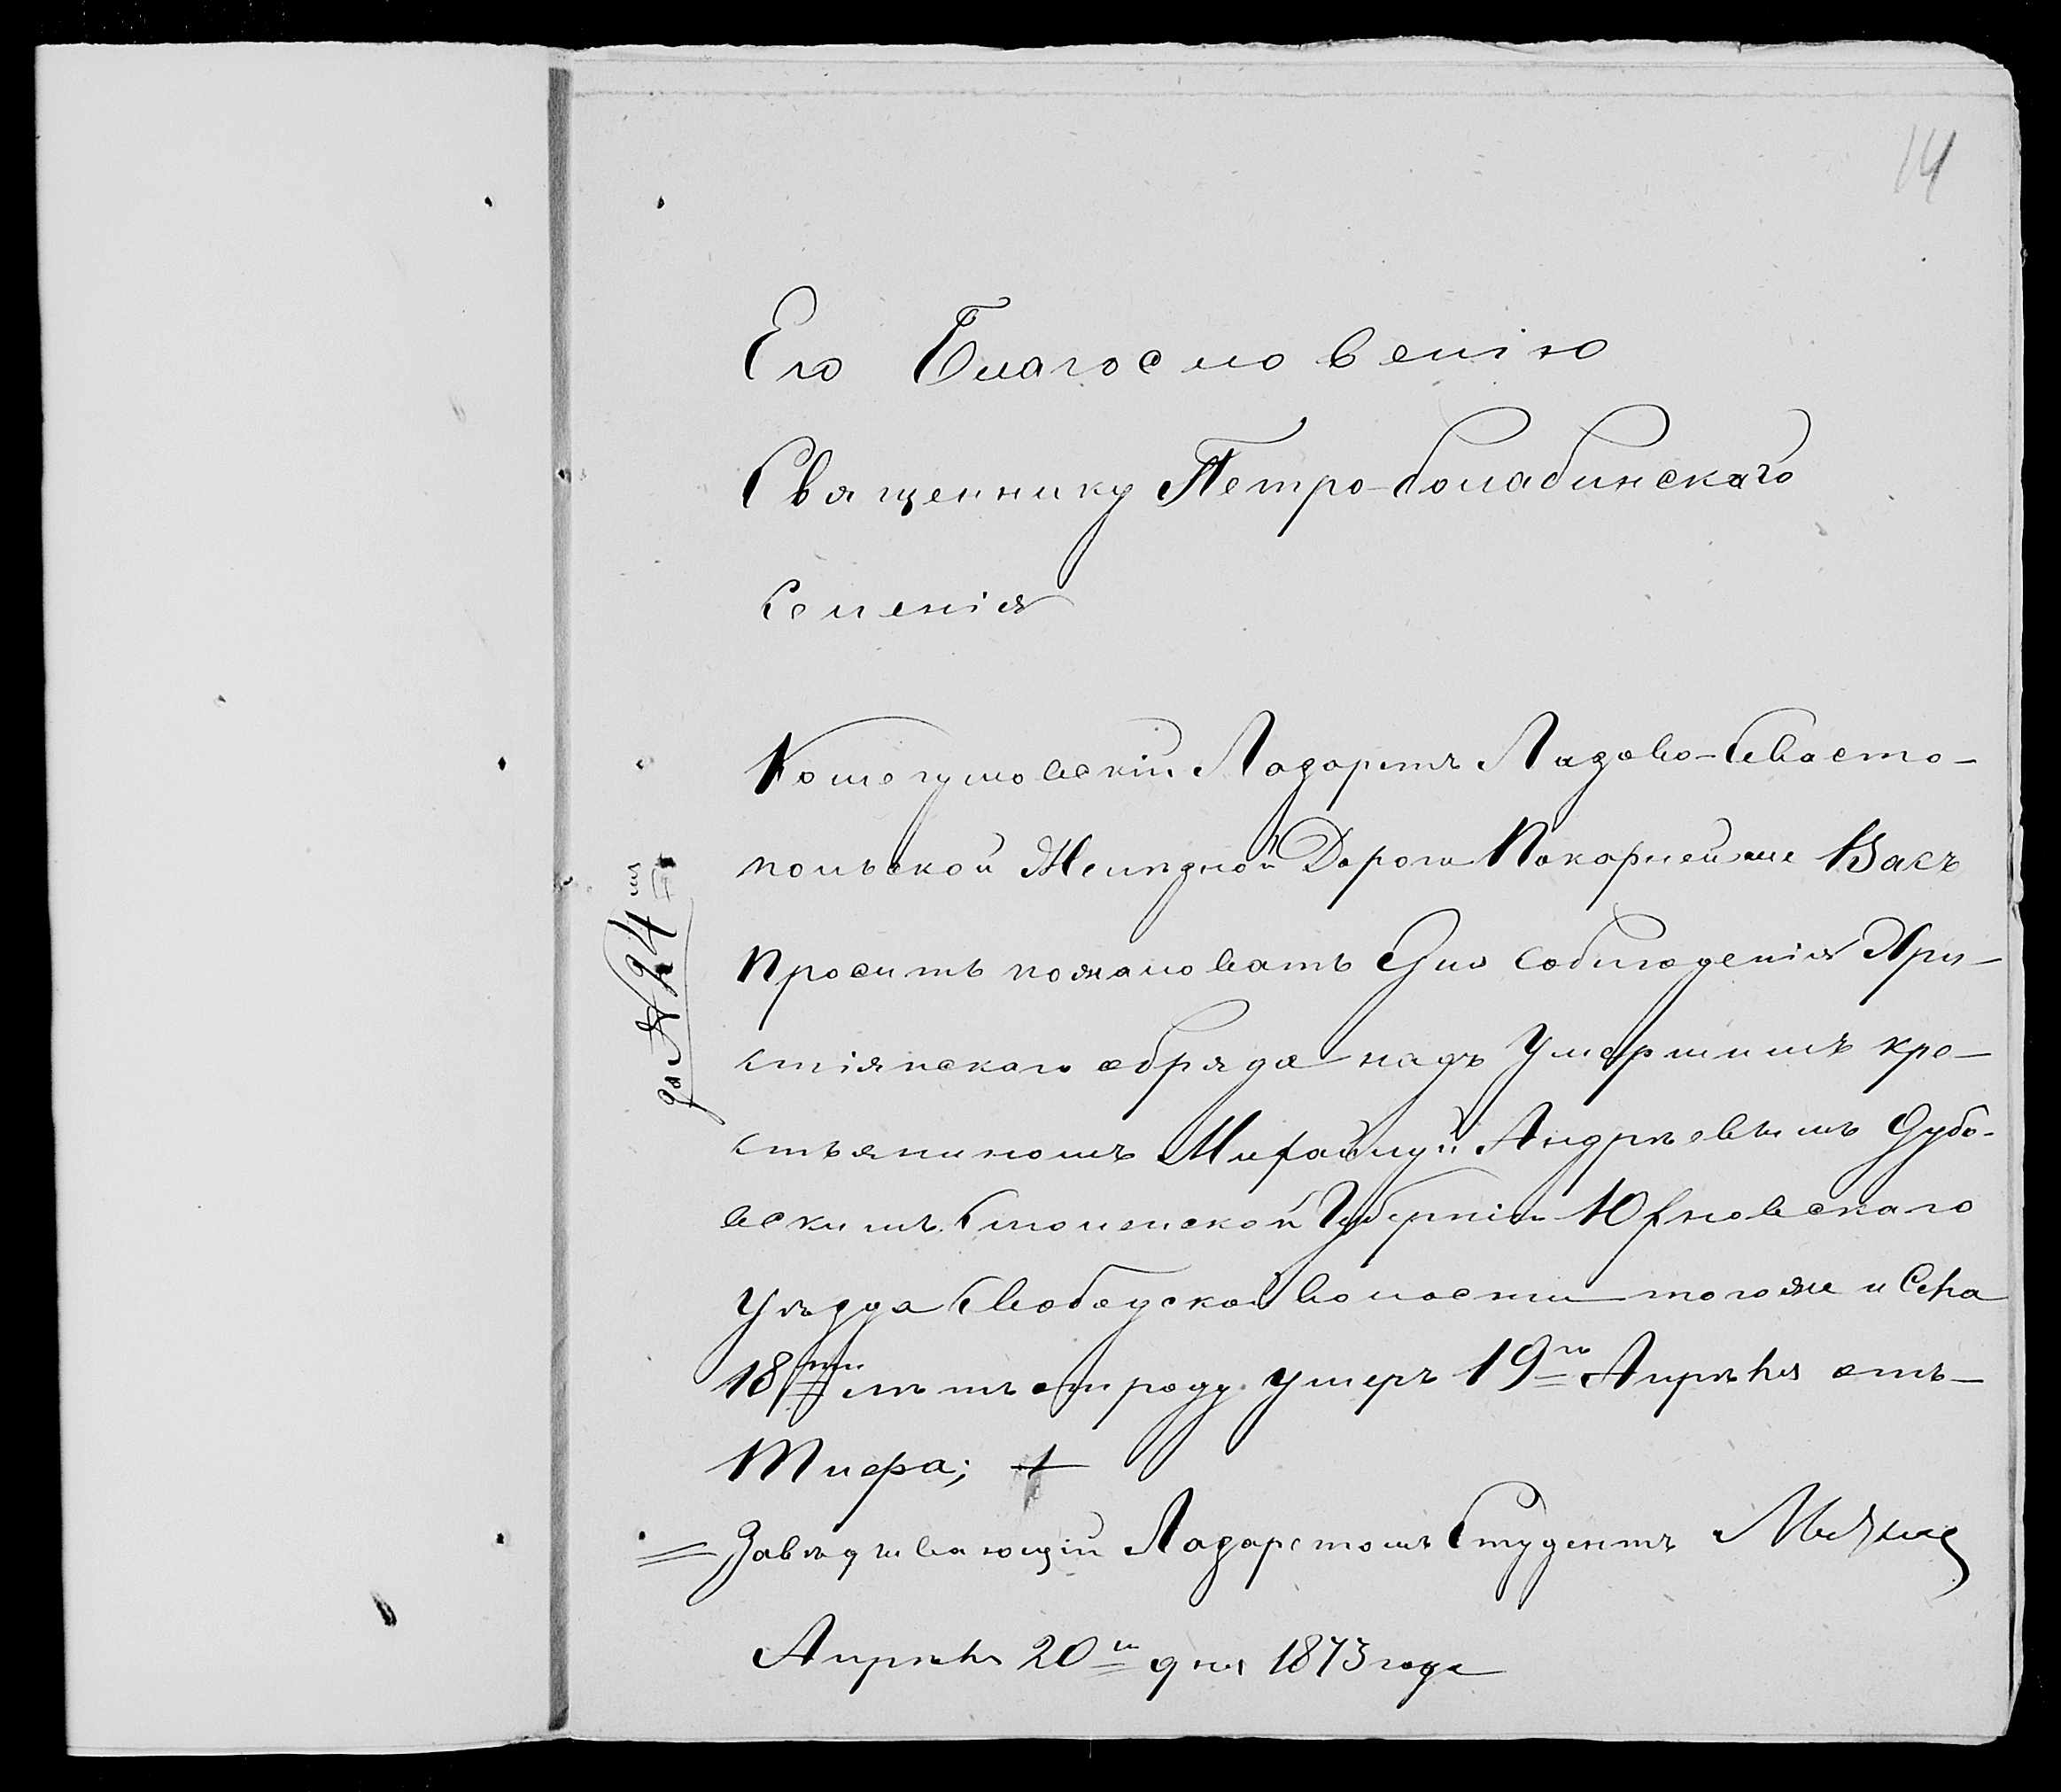 14
Его Благословенію
Священнику Петро-балабинскаго
Селенія
Кошегумовскій Лазаретъ Лазово-Севасто-
польской Желѣзной Дороги Покорнейше Васъ
проситъ пожаловать Для соблюденія Хри-
стіянскаго обряда надъ Умершимъ кре-
стьяниномъ Михайлуй Андрѣевымъ Дубо-
вскимъ Смоленской Губерніи Юхновскаго
Уѣзда Свободской Волости тогоже и Села
18ти лѣтъ отроду умеръ 19го Апрѣля отъ-
Тиера;
Завѣдывающій Лазаретомъ Студентъ
Апрѣля 20го дня 1873 года
№ 24